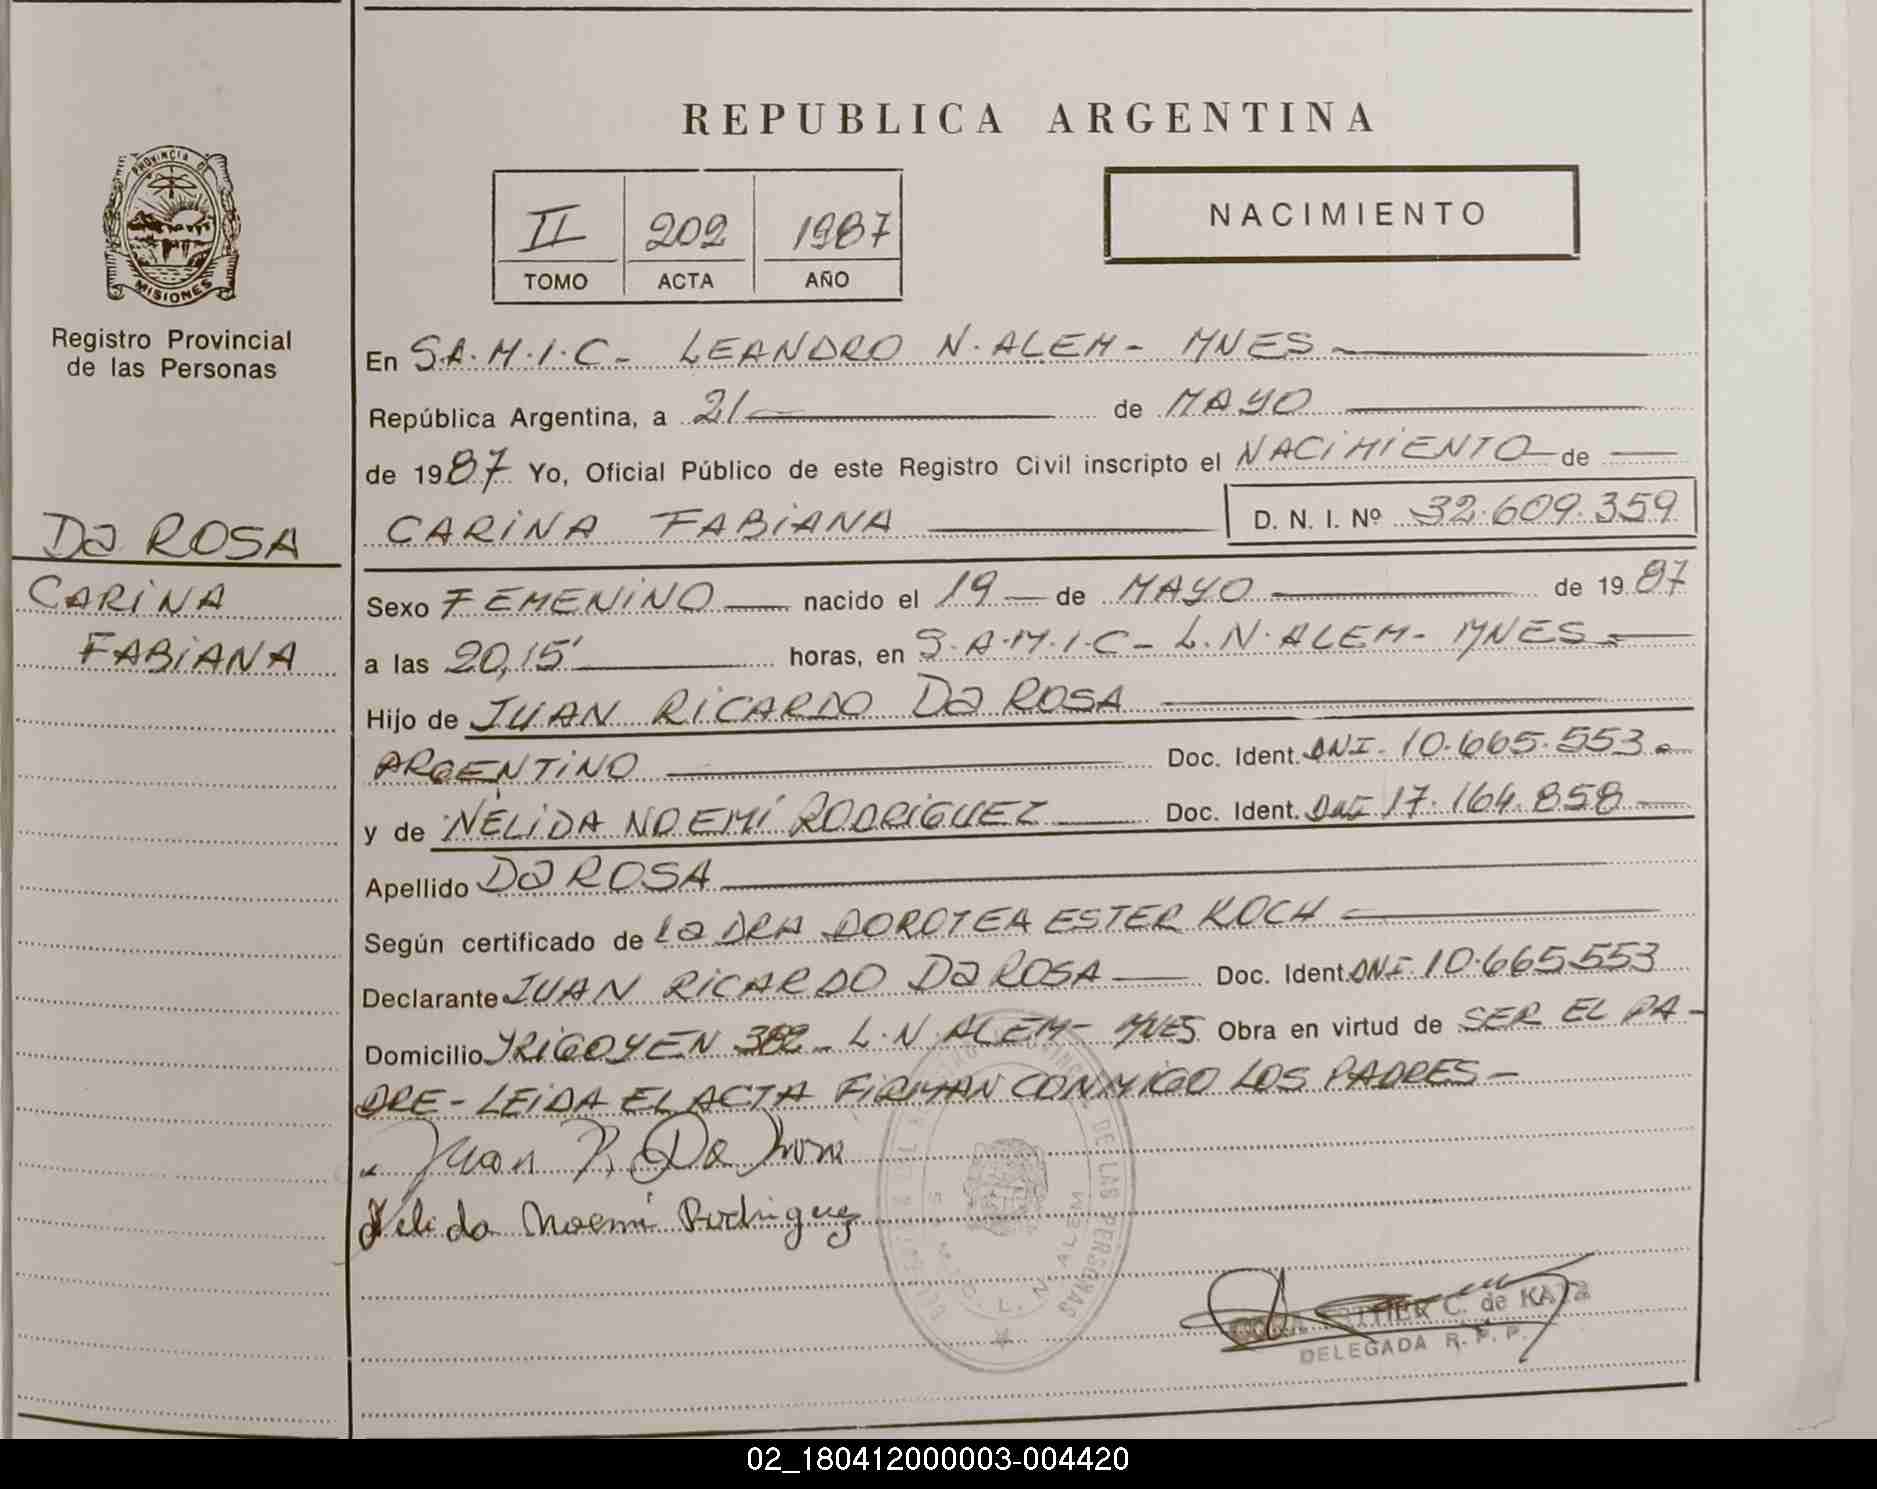 REPUBLICA ARGENTINA
II 202 1987
TOMO ACTA AÑO
NACIMIENTO
PROVINCIA DE
MISIONES
Registro Provincial
de las Personas
Da ROSA
CARINA
FABIANA
En S.A.M.I.C- LEANDRO N. ALEM- MNES
República Argentina, a 21 de MAYO
de 1987 Yo, Oficial Público de este Registro Civil inscripto el NACIMIENTO de
CARINA FABIANA D. N. I. Nº 32.609.359
Sexo FEMENINO nacido el 19 de MAYO de 1987
a las 20,15' horas, en S.A.M.I.C- L.N. ALEM- MNES
Hijo de JUAN RICARDO Da ROSA
ARGENTINO Doc. Ident. DNI. 10.665.553
y de NÉLIDA NOEMÍ RODRIGUEZ Doc. Ident. DNI 17.164.858
Apellido Da ROSA
Según certificado de La DRA DOROTEA ESTER KOCH
Declarante JUAN RICARDO Da ROSA Doc. Ident. DNI. 10.665.553
Domicilio YRIGOYEN L.N. ALEM- MNES Obra en virtud de SER EL PA-
DRE- LEIDA EL ACTA FIRMAN CONMIGO LOS PADRES-
Juan R. Da Rosa
Nelida Noemí Rodriguez
DE LAS PERSONAS
L. N. ALEM
C. de KATZ
DELEGADA R. P. P.
02_180412000003-004420